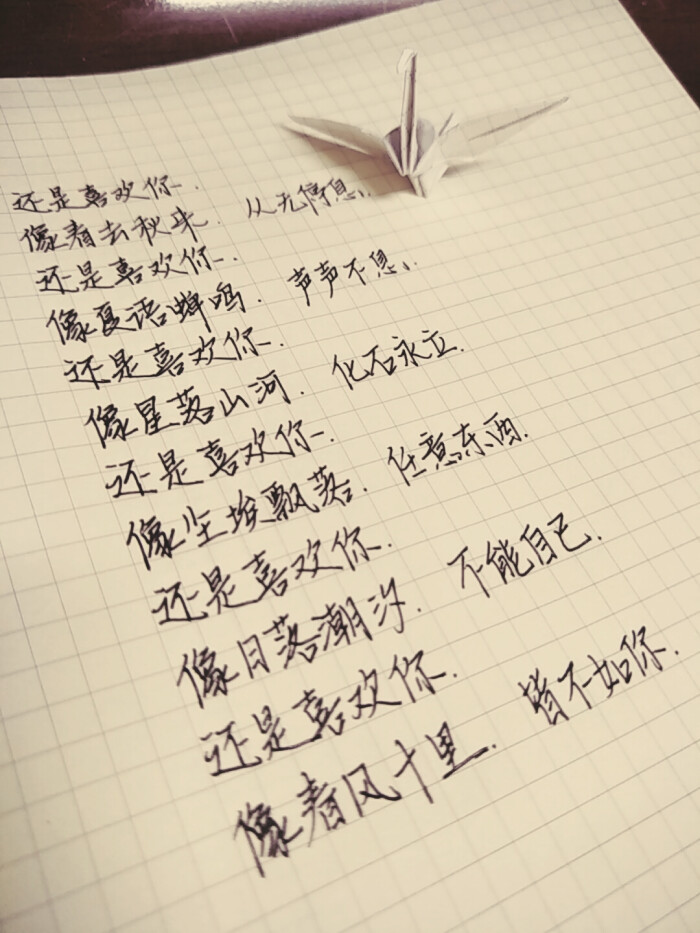 还是喜欢你.
像春去秋来. 从无停息.
还是喜欢你.
像夏语蝉鸣. 声声不息.
还是喜欢你.
像星落山河. 化石永立.
还是喜欢你.
像尘埃飘落. 任意东西.
还是喜欢你.
像日落潮汐. 不能自己.
还是喜欢你.
像春风十里. 皆不如你.